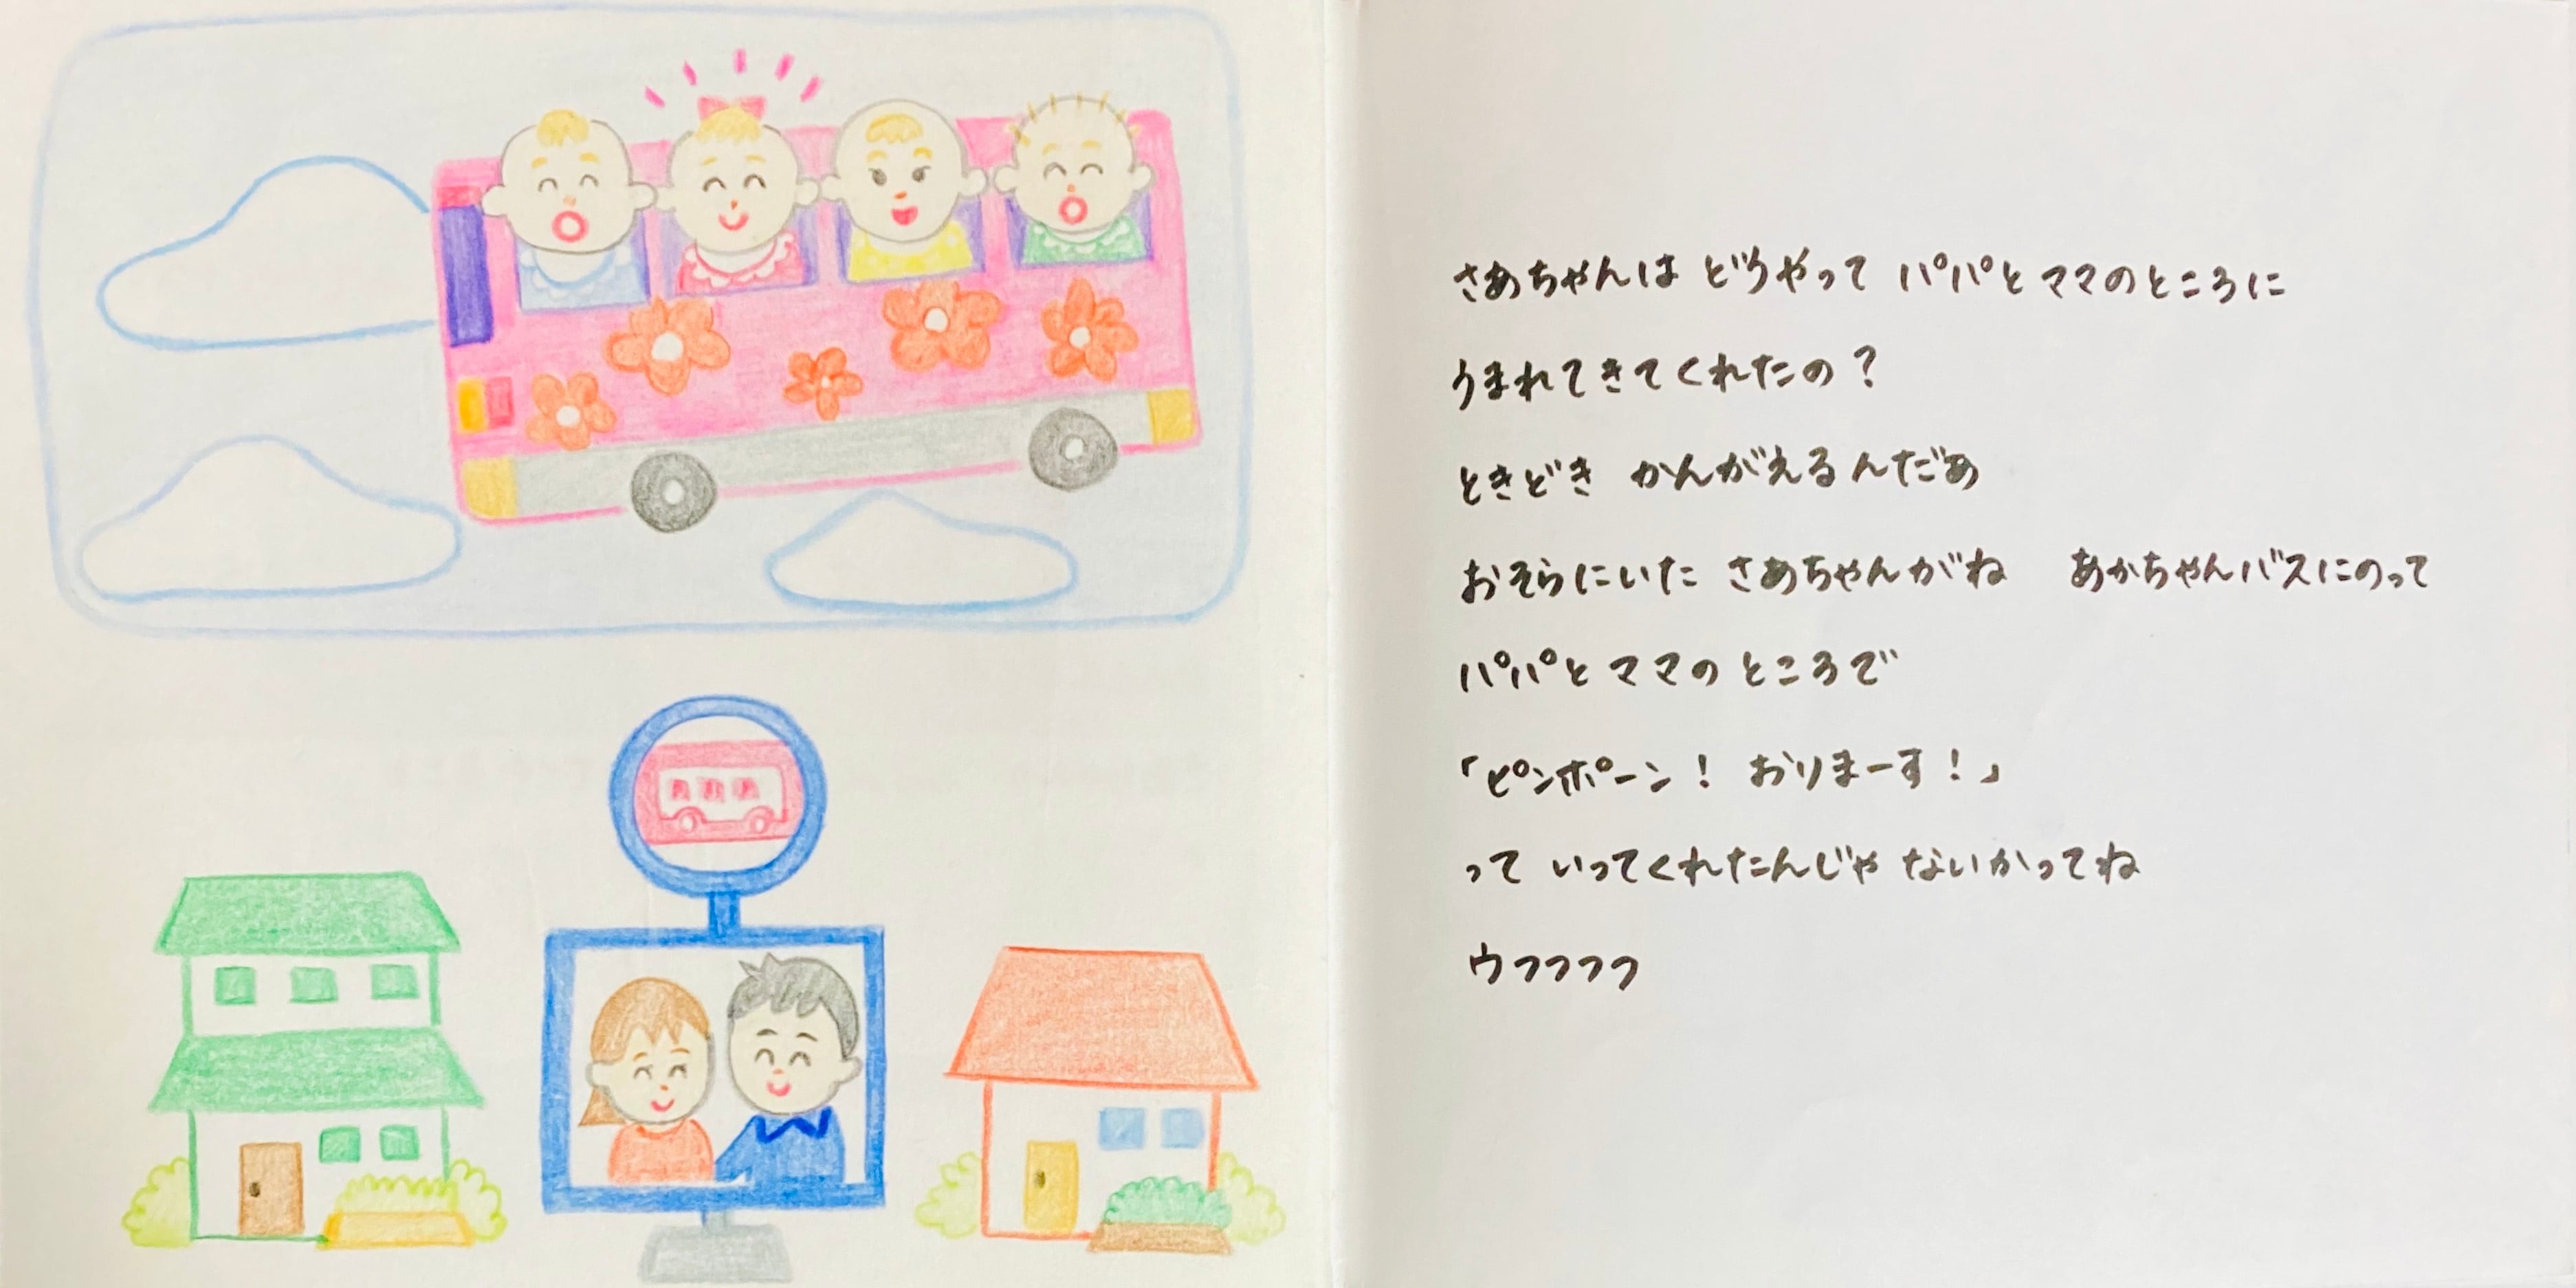 さあちゃんは どうやって パパと ママのところに
うまれてきてくれたの？
ときどき かんがえるんだあ
おそらにいた さあちゃんがね　あかちゃんバスにのって
パパと ママの ところで
「ピンポーン！ おりまーす！」
って いってくれたんじゃ ないかってね
ウフフフフ